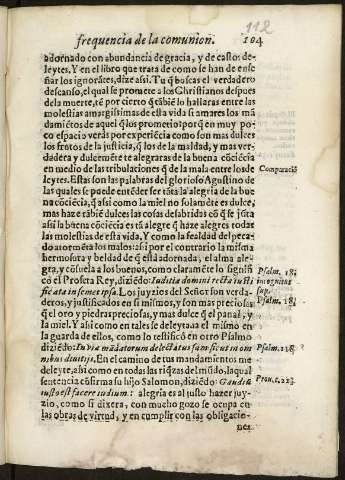 112
frequencia de la comunion. 104
adornado con abundancia de gracia, y de castos de-
leytes. Y en el libro que trata de como se han de ense
ñar los ignorãtes, dize assi. Tu q̃ buscas el verdadero
descanso, el qual se promete a los Christianos despues
de la muerte, tẽ por cierto q̃ tãbiẽ lo hallaras entre las
molestias amargissimas de esta vida si amares los mã
damiẽtos de aquel q̃ los prometio: por q̃ en muy po-
co espacio veràs por experiẽcia como son mas dulces
los frutos de la justicia, q̃ los de la maldad, y mas ver-
dadera y dulcemẽte te alegraras de la buena cõciẽcia
en medio de las tribulaciones q̃ de la mala entre los de
leytes. Estas son las palabras del glorioso Agustino de
las quales se puede entẽder ser tãta la alegria de la bue
na cõciẽcia, q̃ assi como la miel no solamẽte es dulce,
mas haze tãbiẽ dulces las cosas desabridas cõ q̃ se jũta
assi la buena cõciẽcia es tã alegre q̃ haze alegres todas
las molestias de esta vida. Y como la fealdad del peca-
do atormẽta los malos: assi por el contrario la misma
hermosura y beldad de q̃ està adornada, el alma ale-
gra, y cõsuela a los buenos, como claramẽte lo signifi
cò el Profeta Rey, diziẽdo: Iudicia domini recta iusti
ficata in semetipsa. Los juyzios del Señor son verda-
deros, y justificados en si mismos, y son mas preciosas
que el oro y piedras preciosas, y mas dulce q̃ el panal, y
la miel. Y assi como en tales se deleytaua el mismo en
la guarda de ellos, como lo testificò en otro Psalmo
diziẽdo: In via mãdatorum delectatus sum sicut in om
nibus diuitijs. En el camino de tus mandamientos me
deleyte, assi como en todas las riq̃zas del mũdo, la qual
sentencia cõfirma su hijo Salomon, diziẽdo: Gaudiũ
iusto est facere iudium: alegria es al justo hazer juy-
zio, como si dixera, con mucho gozo se ocupa en
las obras de virtud, y en cumplir con las obligacio-
nes
Comparaciõ
Psalm. 18.
incognitus
sup.
Psalm. 18.
Psalm. 118.
Prou. c. 22.